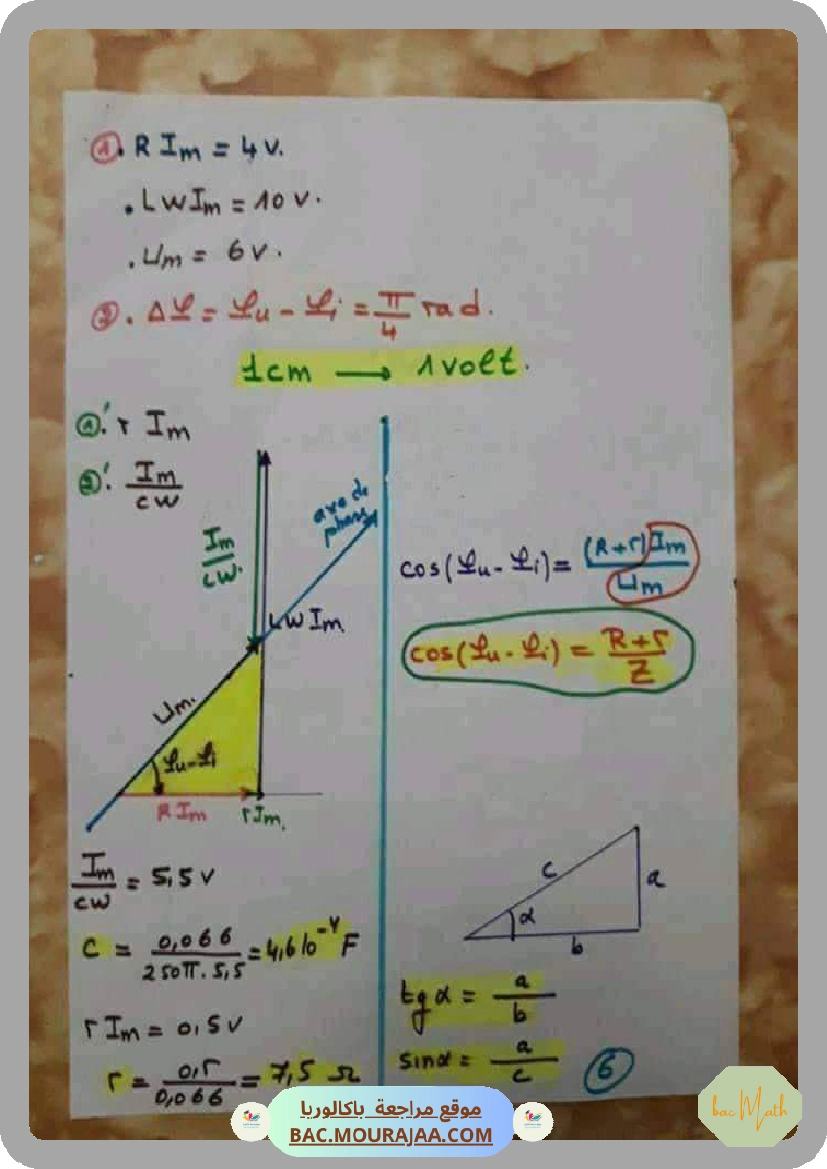 ①. R Im = 4 V.
. LWIm = 10 V.
. Um = 6 V.
②. Δφ = φu - φi = π/4 rad.
1cm → 1 volt.
①'. r Im
②'. Im/cw
Im/cw.
axe de phases
LW Im
Um.
φu-φi
R Im
rIm.
Im/cw = 5,5 V
C = 0,066/250π.5,5 = 4,6 10⁻⁴ F
r Im = 0,5 V
r = 0,5/0,066 = 7,5 Ω
cos(φu - φi) = (R+r)Im/Um
cos(φu - φi) = R+r/Z
c
a
α
b
tg α = a/b
sinα = a/c
⑥
موقع مراجعة باكالوريا
BAC.MOURAJAA.COM
bac Math